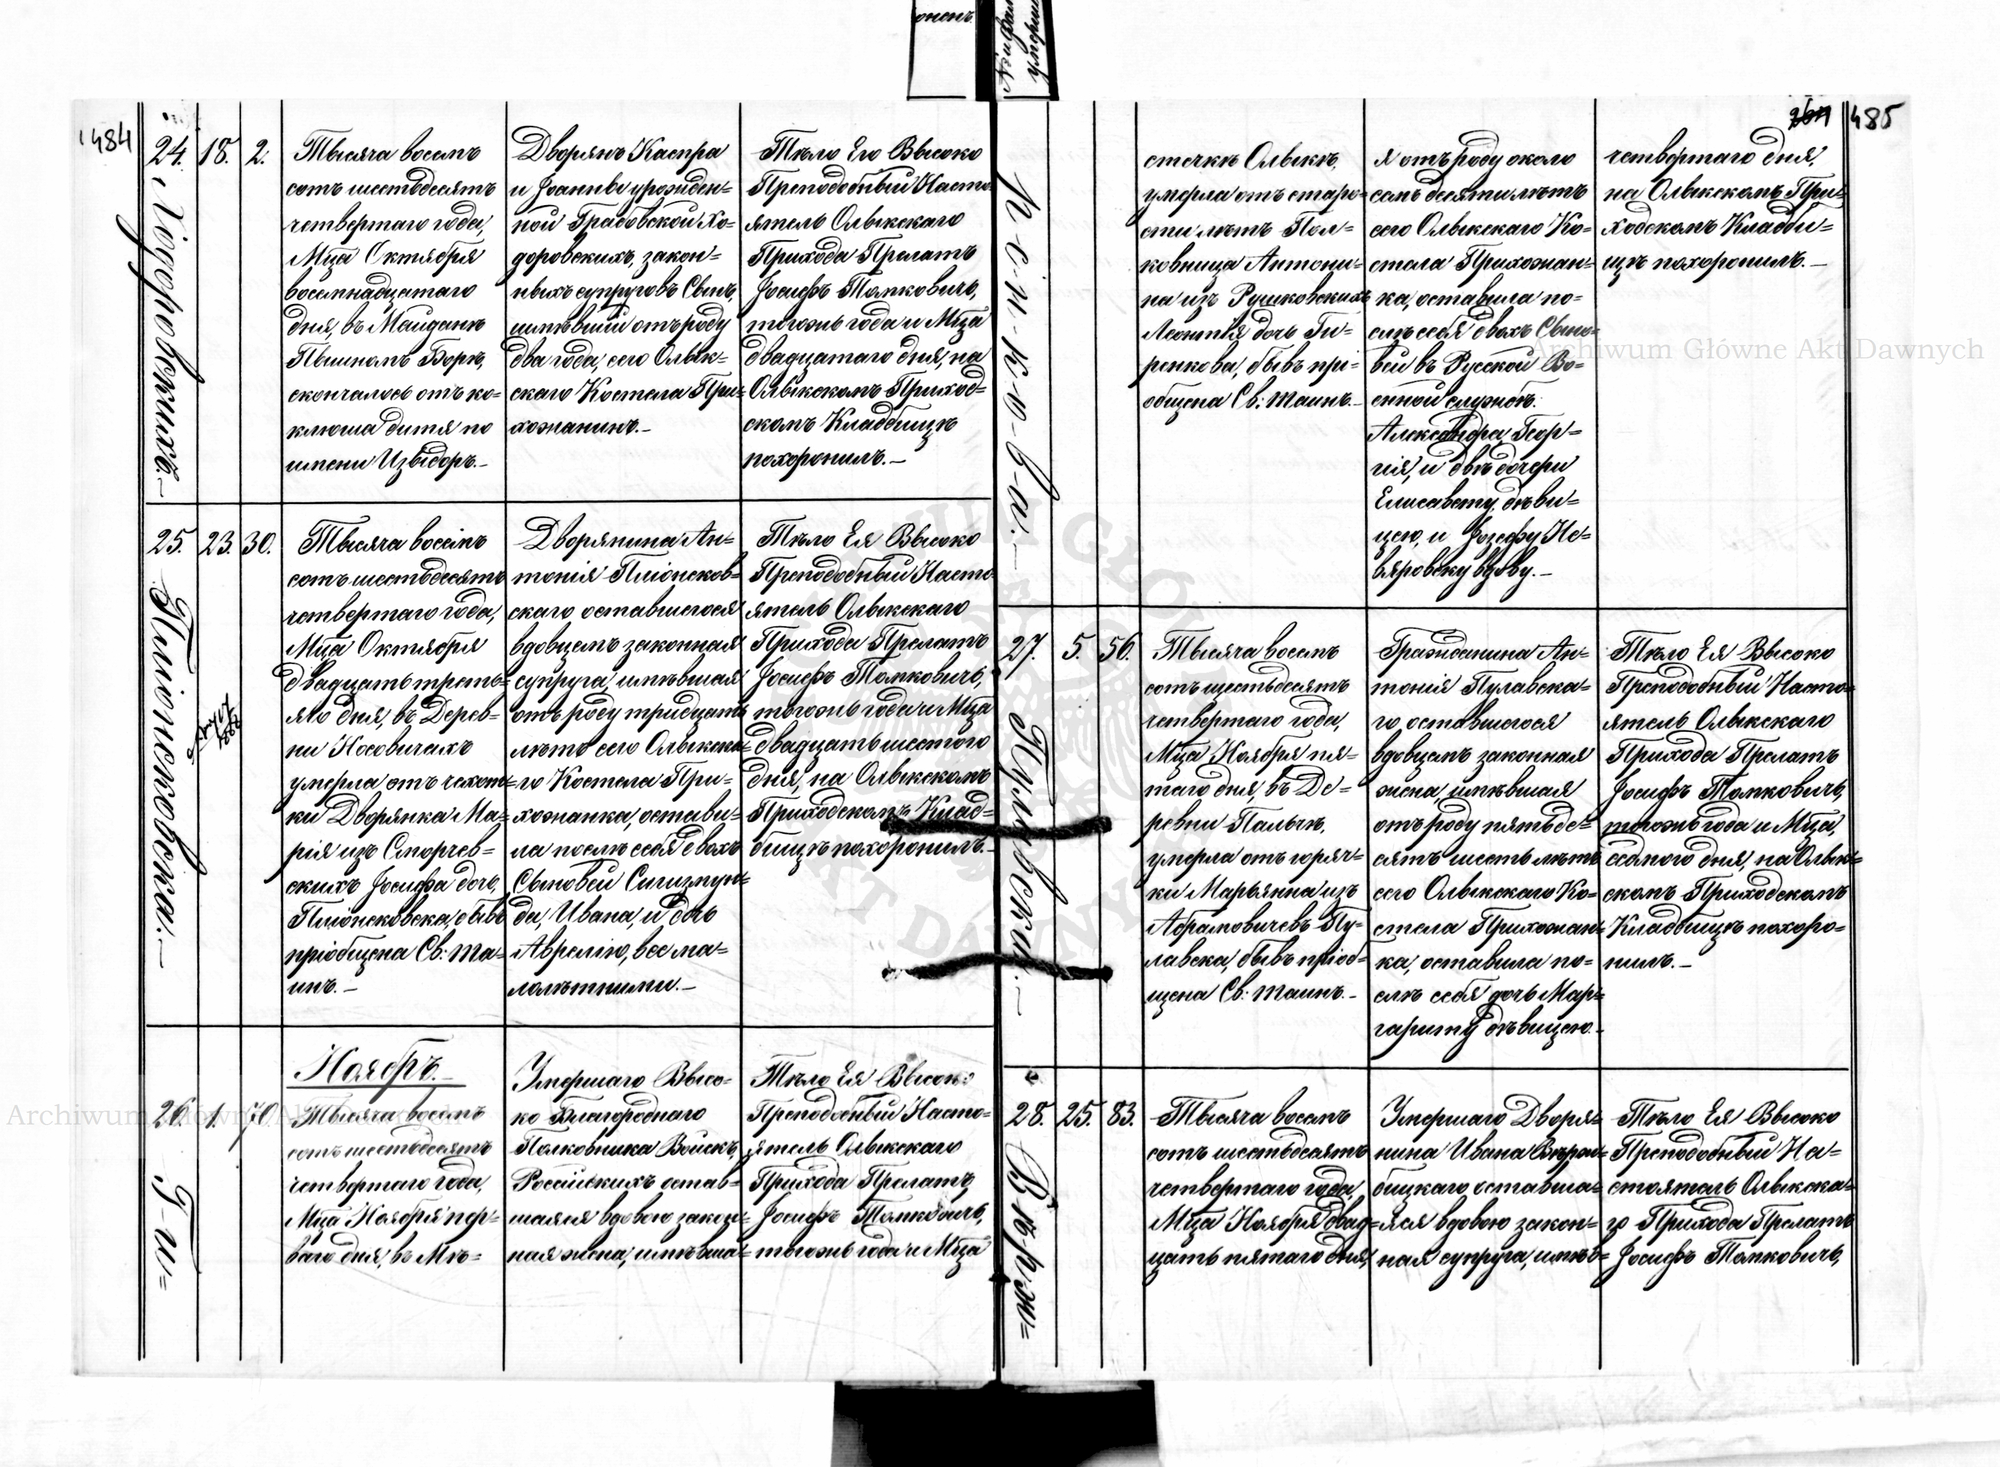 484
24. 18. 2.
Ходоровскихъ.—
Тысяча восемъ
сотъ шестьдесятъ
четвертаго года,
Мца Октября
восемнадцатаго
дня, въ Майданѣ
Пышномъ Боркѣ,
скончалось отъ ко=
клюша дитя по
имени Изыдоръ.—
Дворянъ Каспра
и Іоанны урожден=
ной Грабовской Хо=
доровскихъ, закон=
ныхъ супруговъ Сынъ,
имѣвшій отъ роду
два года, сего Олык=
скаго Костела При=
хожанинъ.—
Тѣло Его Высоко
Преподобный Насто=
ятель Олыкскаго
Прихода Прелатъ
Іосифъ Томковичъ,
тогожъ года и Мца
двадцатаго дня, на
Олыкскомъ Приход=
скомъ Кладбищѣ
похоронилъ.—
25. 23. 30.
Пліонсковска.—
Тысяча восемъ
сотъ шестьдесятъ
четвертаго года,
Мца Октября
двадцать треть=
яго дня, въ Дерев=
ни Носовичахъ
умерла отъ чахот=
ки Дворянка Ма=
рія изъ
скихъ Іосифа дочь,
Пліонсковска, бывъ
пріобщена Св: Та=
инъ.—
Дворянина Ан=
тонія Пліонсков=
скаго оставшегося
вдовцемъ законная
супруга, имѣвшая
отъ роду тридцать
лѣтъ сего Олыкска=
го Костела При=
хожанка, остави=
ла послѣ себя двохъ
Сыновей Сигизмун=
да, Ивана, и дочь
Аврелію, все ма=
лолѣтними.—
Тѣло Ея Высоко
Преподобный Насто=
ятель Олыкскаго
Прихода Прелатъ
Іосифъ Томковичъ,
тогожъ года и Мца
двадцать шестого
дня, на Олыкскомъ
Приходскомъ Клад=
бищѣ похоронилъ.—
Ноябрь.—
26. 1. 70.
Ги=
Тысяча восемъ
сотъ шестьдесятъ
четвертаго года,
Мца Ноября пер=
ваго дня, въ Мѣ=
Умершаго Высо=
ко Благороднаго
Полковника Войскъ
Россійскихъ остав=
шаяся вдовою закон=
ная жена, имѣвша=
Тѣло Ея Высоко
Преподобный Насто=
ятель Олыкскаго
Прихода Прелатъ
Іосифъ Томковичъ,
тогожъ года и Мца
485
стечкѣ Олыкѣ,
умерла отъ старо=
сти лѣтъ Пол=
ковница Антони=
на изъ Рушковскихъ
Леонтія дочь Ги=
ренкова, бывъ прі=
общена Св: Таинъ.—
я отъ роду около
семъ десяти лѣтъ
сего Олыкскаго Ко=
стела Прихожан=
ка, оставила по=
слѣ себя двохъ Сыно=
вей въ Русской Во=
енной службѣ:
Александра, Геор=
гія, и двѣ дочери
Елисавету, дѣви=
цею, и Іозефу Не=
вяровску вдову.—
четвертаго дня,
на Олыкскомъ При=
ходскомъ Кладби=
щѣ похоронилъ.—
27. 5. 56.
Пулавска.—
Тысяча восемъ
сотъ шестьдесятъ
четвертаго года,
Мца Ноября пя=
таго дня, въ Де=
ревни Пальчѣ,
умерла отъ горяч=
ки Марьянна изъ
Абрамовичевъ Пу=
лавска, бывъ пріоб=
щена Св: Таинъ.—
Гражданина Ан=
тонія Пулавска=
го оставшегося
вдовцемъ законная
жена, имѣвшая
отъ роду пятьде=
сятъ шесть лѣтъ
сего Олыкскаго Ко=
стела Прихожан=
ка, оставила по=
слѣ себя дочь Мар=
гариту дѣвицею.—
Тѣло Ея Высоко
Преподобный Насто=
ятель Олыкскаго
Прихода Прелатъ
Іосифъ Томковичъ,
тогожъ года и Мца,
седмого дня, на Олык=
скомъ Приходскомъ
Кладбищѣ похоро=
нилъ.—
28. 25. 83.
Тысяча восемъ
сотъ шестьдесятъ
четвертаго года,
Мца Ноября двад=
цать пятаго дня,
Умершаго Дворя=
нина Ивана
бицкаго оставша=
яся вдовою закон=
ная супруга, имѣв=
Тѣло Ея Высоко
Преподобный На=
стоятель Олыкска=
го Прихода Прелатъ
Іосифъ Томковичъ,
Archiwum Główne Akt Dawnych
Archiwum Główne Akt Dawnych